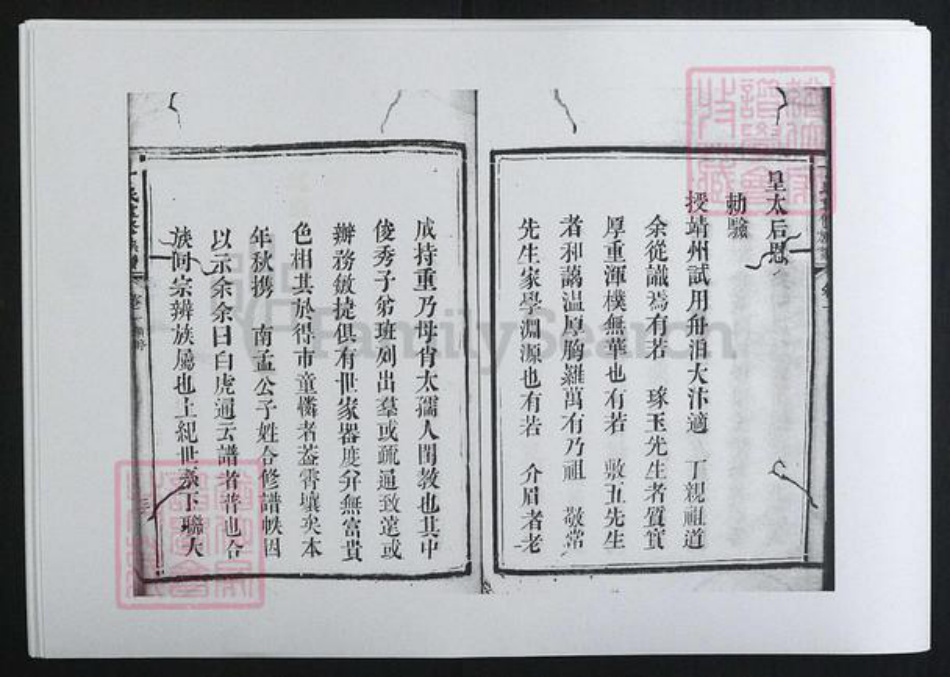 皇太后恩
勅驗
授靖州試用舟泊大汴適　丁親祖道
余從議焉有若　琢玉先生者質實
厚重渾樸無華也有若　敷五先生
者和藹温厚胸羅萬有乃祖　敬常
先生家學淵源也有若　介眉者老
成持重乃母肖太孺人閨教也其中
俊秀子弟班列出羣或疏通致遠或
辦務敏捷俱有世家器度并無富貴
色相其於得市童憐者蓋霄壤矣本
年秋携　南孟公子姓合修譜帙因
以示余余曰白虎通云譜者普也合
族同宗辨族屬也上紀世系下聯大
FamilySearch